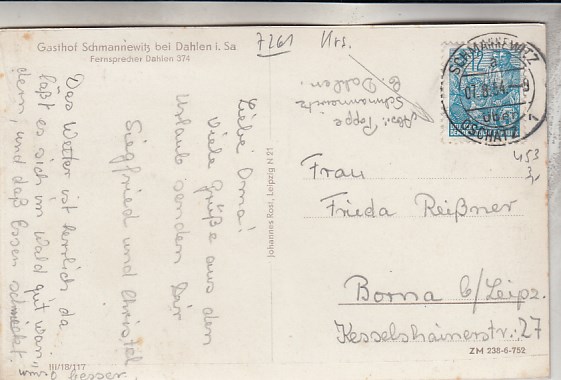 Gasthof Schmannewitz bei Dahlen i. Sa
Fernsprecher Dahlen 374
7261 Krs.
Liebe Oma!
Viele Grüße aus den
Urlaub senden Dir
Siegfried und Christel
Das Wetter ist herrlich da
läßt es sich im Wald gut wan„
dern, und daß Essen schmeckt
umso besser.
III/18/117
Johannes Rost, Leipzig N 21
Abs.: Poppe
Schmannewitz
b. Dahlen.
SCHMANNEWITZ
über
OSCHATZ
12
453
Frau
Frieda Reißner
Borna b/Leipz.
Kesselshainerstr.: 27
ZM 238-6-752